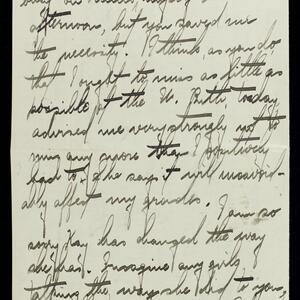 afternoon, but you saved me
the necessity. I think as you do
that I ought to miss as little as
possible at the U. Ruth, today,
advised me very strongly not to
miss any more than I positively
had to. She says it will unavoid-
ably affect my grades. I am so
sorry Kay has changed the way
she has. Imagine any girl
the way she did to you,